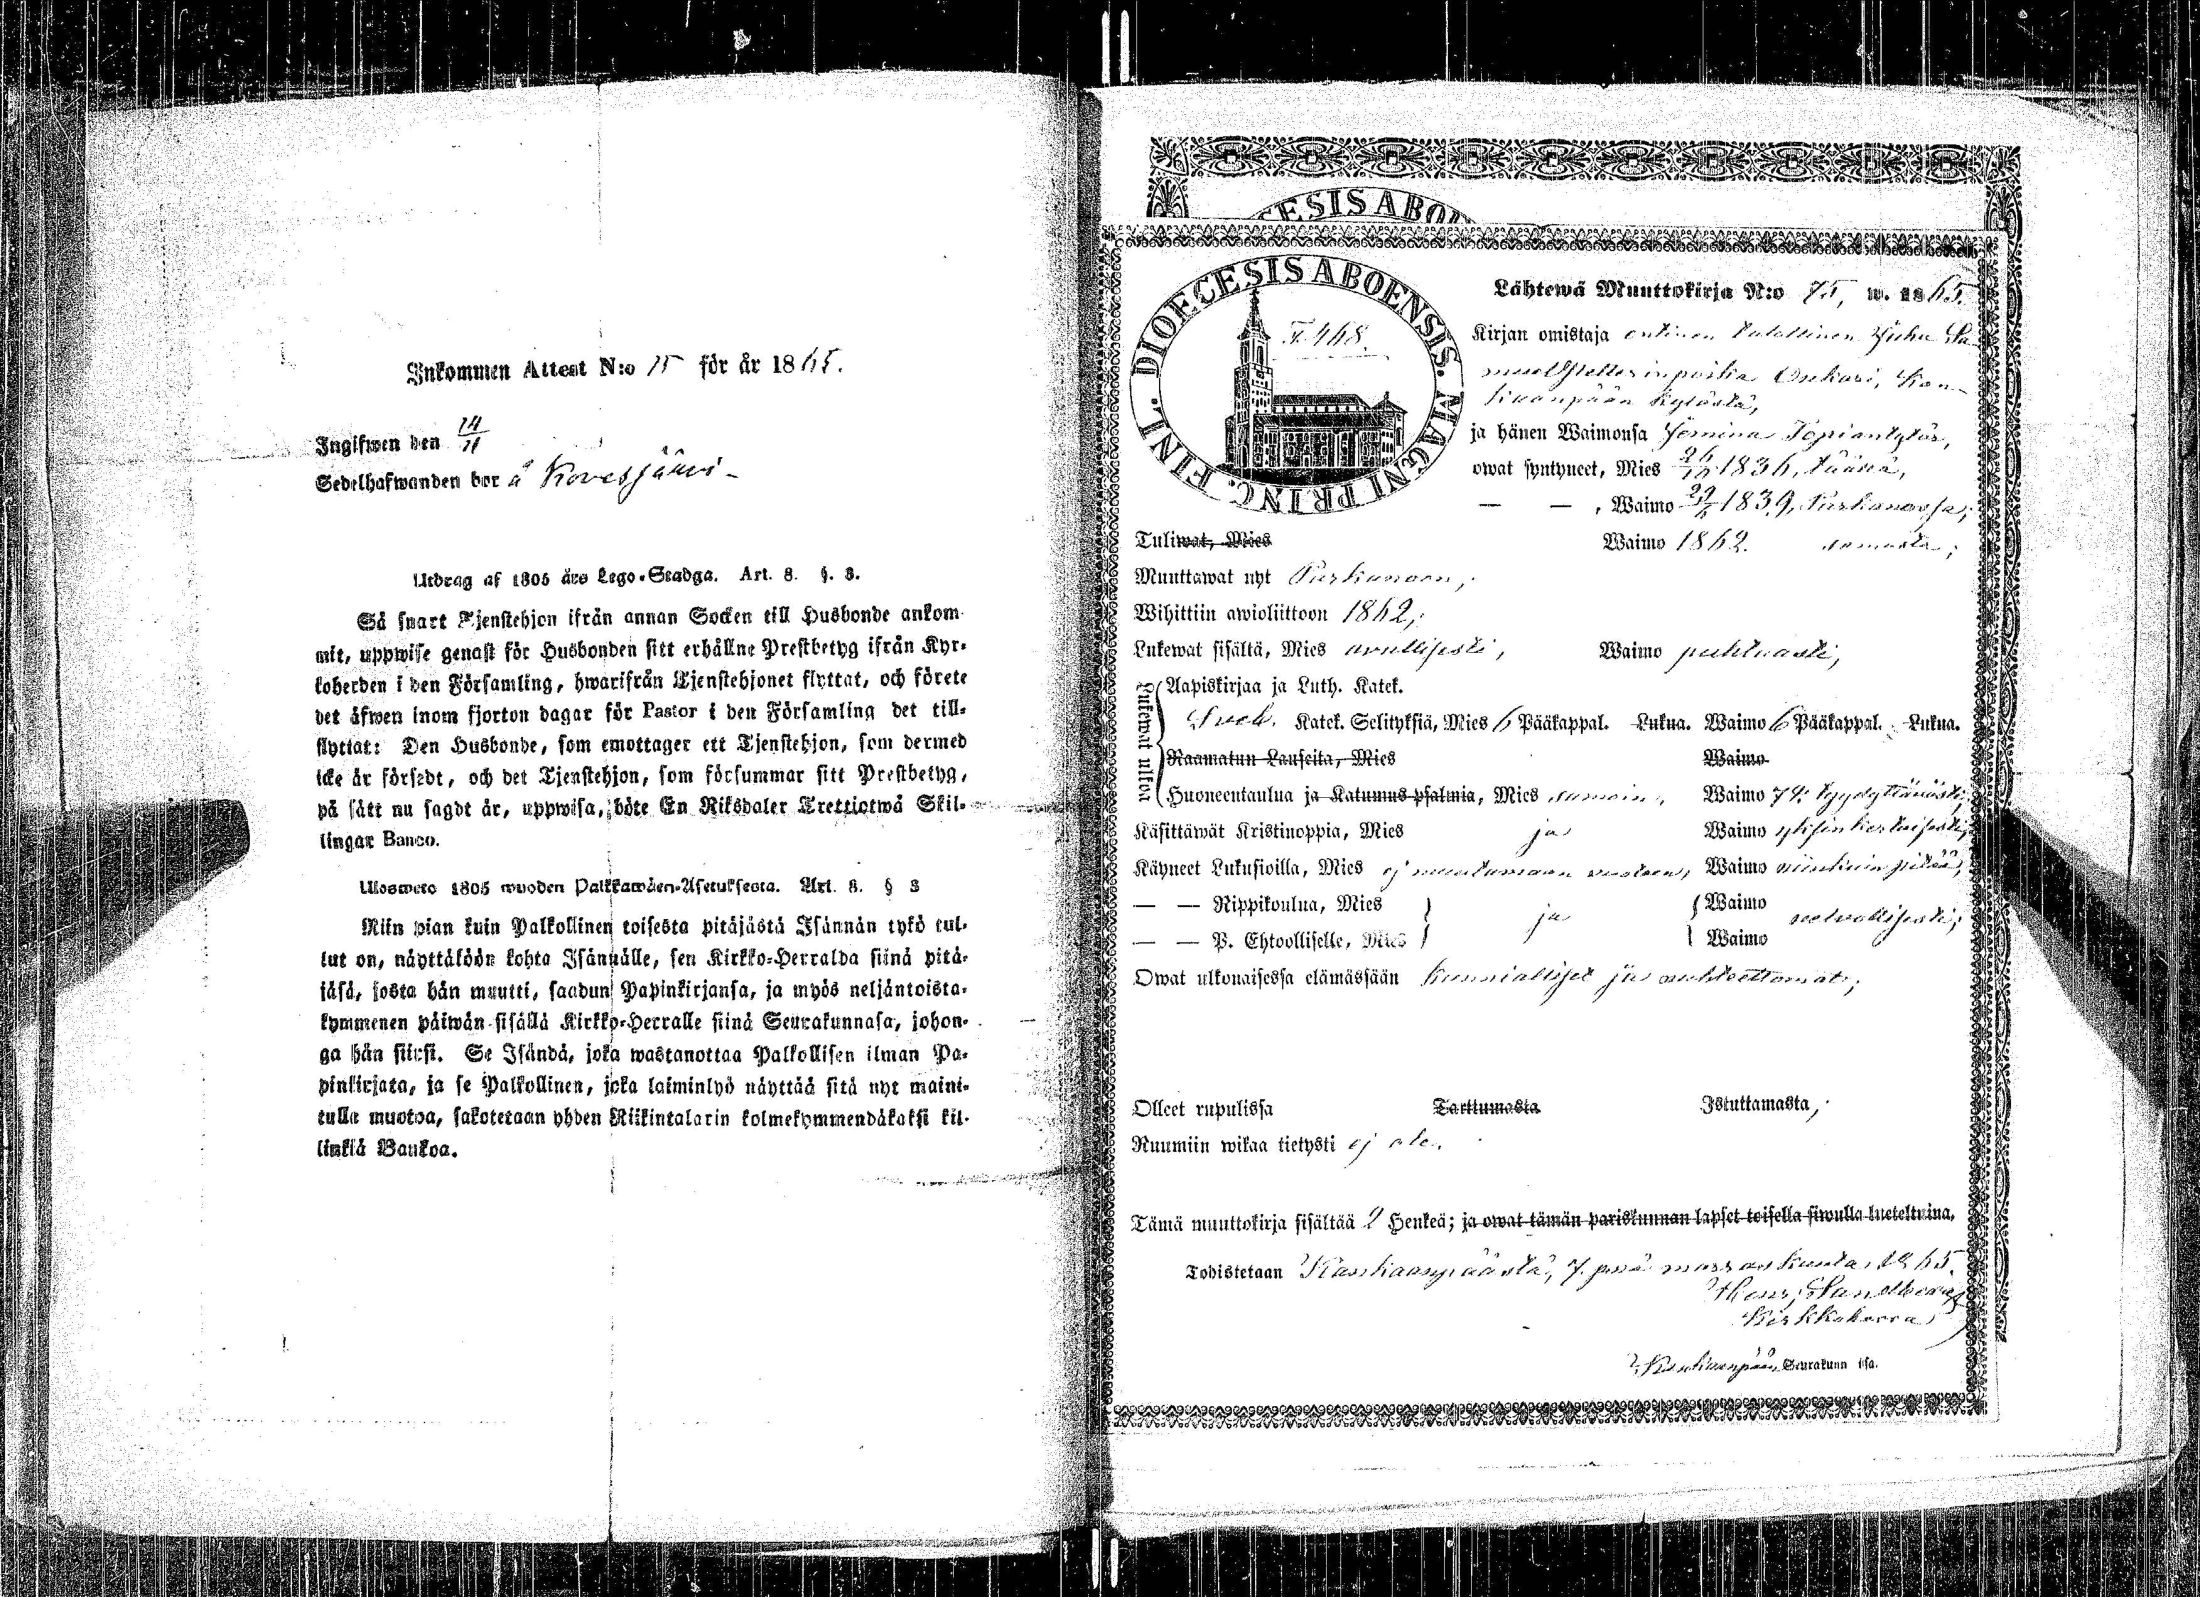 Inkommen Attest N:o 15 för år 1865.
Ingifwen den 14/11
Sedelhafwanden bor å Kovesjärvi -
Utdrag af 1805 års Lego-Stadga. Art. 8. §. 3.
Så snart Tjenstehjon ifrån annan Socken till Husbonde ankom-
mit, uppwise genast för Husbonden sitt erhållne Prestbetyg ifrån Kyr-
koherden i den Församling, hwarifrån Tjenstehjonet flyttat, och förete
det äfwen inom fjorton dagar för Pastor i den Församling det till-
flyttat: Den Husbonde, som emottager ett Tjenstehjon, som dermed
icke är försedt, och det Tjenstehjon, som försummar sitt Prestbetyg,
på sätt nu sagdt är, uppwisa, böte En Riksdaler Trettiotwå Skil-
lingar Banco.
Ulosweto 1805 wuoden Palkkawäen-Asetuksesta. Art. 8. § 3
Niin pian kuin Palkollinen toisesta pitäjästä Isännän tykö tul-
lut on, näyttäköön kohta Isännälle, sen Kirkko-Herralda siinä pitä-
jäsä, josta hän muutti, saadun Papinkirjansa, ja myös neljäntoista-
kymmenen päiwän sisällä Kirkko-Herralle siinä Seurakunnasa, johon-
ga hän siirsi. Se Isändä, joka wastanottaa Palkollisen ilman Pa-
pinkirjata, ja se Palkollinen, joka laiminlyö näyttää sitä nyt maini-
tulla muotoa, sakotetaan yhden Riikintalarin kolmekymmendäkaksi kil-
linkiä Bankoa.
ESIS ABO
DIOECESIS ABOENSIS. MAGNI PRINC. FINL.
F. 468.
Lähtewä Muuttokirja N:o 75, w. 1865.
Kirjan omistaja entinen talollinen Juha Sa-
muel Onkari, Kan-
kaanpään kylästä,
ja hänen Waimonsa Jemina Topiantytär,
owat syntyneet, Mies 1836, täällä,
— — , Waimo 1839, Parkanossa;
Tuliwat, Mies Waimo 1862. samasta;
Muuttawat nyt Parkanoon;
Wihittiin awioliittoon 1862;
Lukewat sisältä, Mies awullisesti, Waimo puhtaasti;
Lukewat ulkoa
Aapiskirjaa ja Luth. Katek.
Sveb. Katek. Selityksiä, Mies 6 Pääkappal. Lukua. Waimo 6 Pääkappal. Lukua.
Raamatun Lauseita, Mies Waimo
Huoneentaulua ja Katumus-psalmia, Mies samoin, Waimo tyydyttäwästi;
Käsittäwät Kristinoppia, Mies ja Waimo yksinkertaisesti;
Käyneet Lukusioilla, Mies ej muutamaan vuoteen, Waimo niinkuin pitää;
— — Rippikoulua, Mies ja Waimo
— — P. Ehtoolliselle, Mies Waimo
Owat ulkonaisessa elämässään kunnialliset ja nuhteettomat;
Olleet rupulissa Tarttumasta Istuttamasta,
Ruumiin wikaa tietysti ej ole.
Tämä muuttokirja sisältää 2 Henkeä; ja owat tämän pariskunnan lapset toisella siwulla lueteltuina.
Todistetaan Kankaanpäästä, 7. pnä marraskuuta 1865.
Sandberg
Kirkkoherra
Kankaanpään Seurakunnassa.